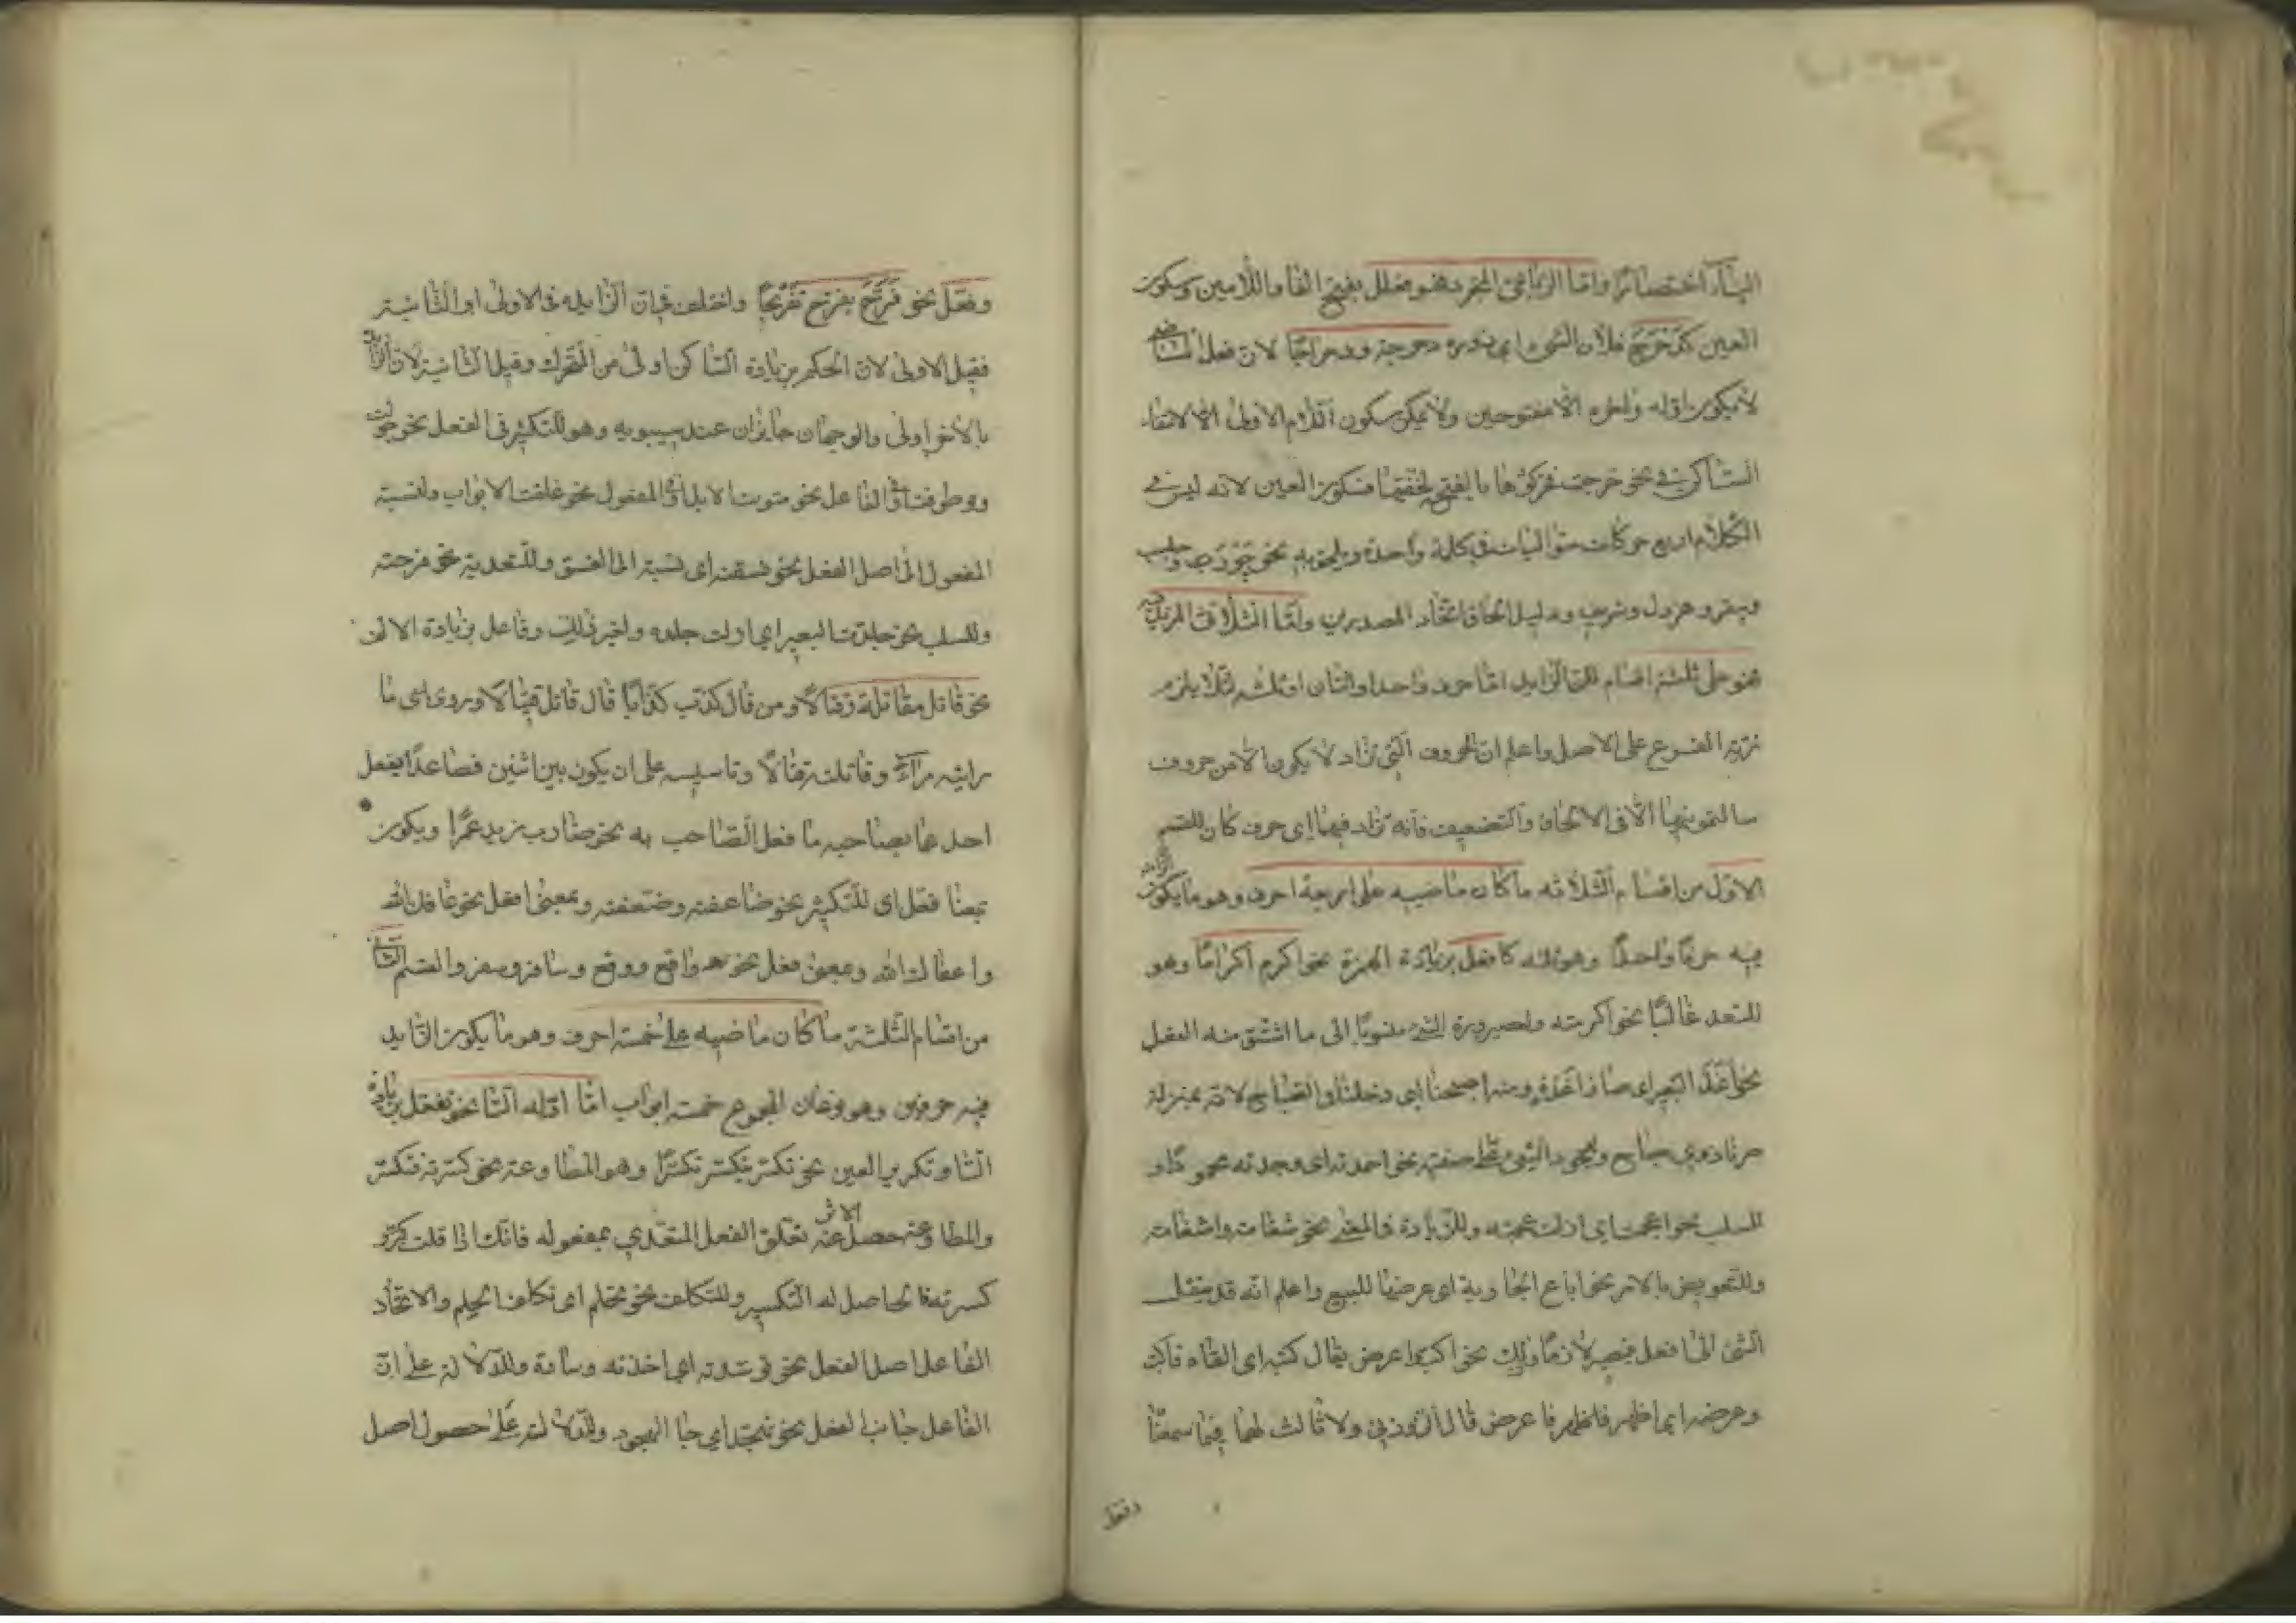 الباب اختصارًا وامّا الرباعى المجرد فهو فعلل بفتح الفا واللامين وسكون
العين كدَحْرَجَ فلان الشئ اى دوره دحرجة ودحراجًا لان فعل الماضى
لا يكون اوله واخره الا مفتوحين ولا يمكن سكون اللام الاولى لالتقاء
الساكنين فى نحو دحرجت فحركوها بالفتح لخفتها وسكون العين لانه ليس فى
الكلام اربع حركات متواليات فى كلمة واحدة ويلحق به نحو جَوْرَبَ وجلبب
وبيقر وهرول وشريف ودليل الحاق اتحاد المصدرين وامّا الثلاثى المزيد فيه
فهو على ثلثة اقسام لان الزايد امّا حرف واحد او اثنان او ثلثه لئلا يلزم
مزية الفرع على الاصل واعلم ان الحروف التى تزاد لا يكون الا من حروف
سالتمونيها الا فى الالحاق والتضعيف فانه تزاد فيهما اى حرف كان القسم
الاول من اقسام الثلاثه ما كان ماضيه على اربعة احرف وهو ما يكون الزايد
فيه حرفًا واحدًا وهو ثلثه كافعل بزيادة الهمزة نحو اكرم اكرامًا وهو
للتعد غالبًا نحو اكرمته ولصيرورة الشئ منسوبًا الى ما اشتق منه الفعل
نحو اَغَدَّ البعير اى صار ذا غدة ومنه اصبحنا اى دخلنا فى الصباح لانه بمنزلة
صرنا ذوى صباح ولوجود الشئ على صفته نحو احمدته اى وجدته محمودًا و
للسلب نحو اعجمت اى ازلت عجمته وللزيادة فى المعنى نحو شغلته واشغلته
وللتعويض بالامر نحو اباع الجارية اى عرضها للبيع واعلم انه قد ينقل
الشئ الى افعل فيصير لازمًا وذلك نحو اكب واعرض يقال كبه اى القاه فاكب
وعرضه اى اظهره فاظهر فاعرض قال الزوزنى ولا ثالث لهما فيما سمعنا
وفعّل
وفعّل نحو فَرَّحَ يفرّح تفريحًا واختلف فى ان الزايده فى الاولى او الثانية
فقيل الاولى لان الحكم بزيادة الساكن اولى من المتحرك وقيل الثانية لان الزيادة
بالآخر اولى والوجهان جايزان عند سيبويه وهو للتكثير فى الفعل نحو جولت
وطوفت او فى الفاعل نحو موتت الابل او فى المفعول نحو غلقت الابواب ولنسبة
المفعول الى اصل الفعل نحو فسقته اى نسبته الى الفسق وللتعدية نحو فرحته
وللسلب نحو جلدت البعير اى ازلت جلده ولغير ذلك وفاعل بزيادة الالف
نحو قاتل مقاتلة وقتالًا ومن قال كذّب كذّابًا قال قاتل قيتالًا وروى اى ما
راتيه مراء وقاتلته قتالًا وتاسيسه على ان يكون بين اثنين فصاعدًا يفعل
احدهما بصاحبه ما فعل الصاحب به نحو ضارب زيد عمرًا ويكون
بمعنا فعّل اى للتكثير نحو ضاعفته وضعّفته وبمعنى افعل نحو عافاك الله
واعفاك الله وبمعنى فعل نحو واقع ووقع وسافر وسفر والقسم الثانى
من اقسام الثلثة ما كان ماضيه على خمسة احرف وهو ما يكون الزايد
فيه حرفين وهو نوعان المجموع خمسة ابواب امّا اوله التا نحو تفعّل بزيادة
التا وتكرير العين نحو تكسّر يتكسّر تكسّرًا وهو للمطاوعة نحو كسّرته فتكسّر
والمطاوعة حصول الاثر عند تعلق الفعل المتعدى بمفعوله فانك اذا قلت كسرته
كسرته فالحاصل له التكسير وللتكلف نحو تحلم اى تكلف الحلم والاتخاذ
الفاعل اصل الفعل نحو توسدته اى اخذته وسادة وللدلالة على ان
الفاعل جانب الفعل نحو تهجد اى جانب الهجود وللدلالة على حصول اصل